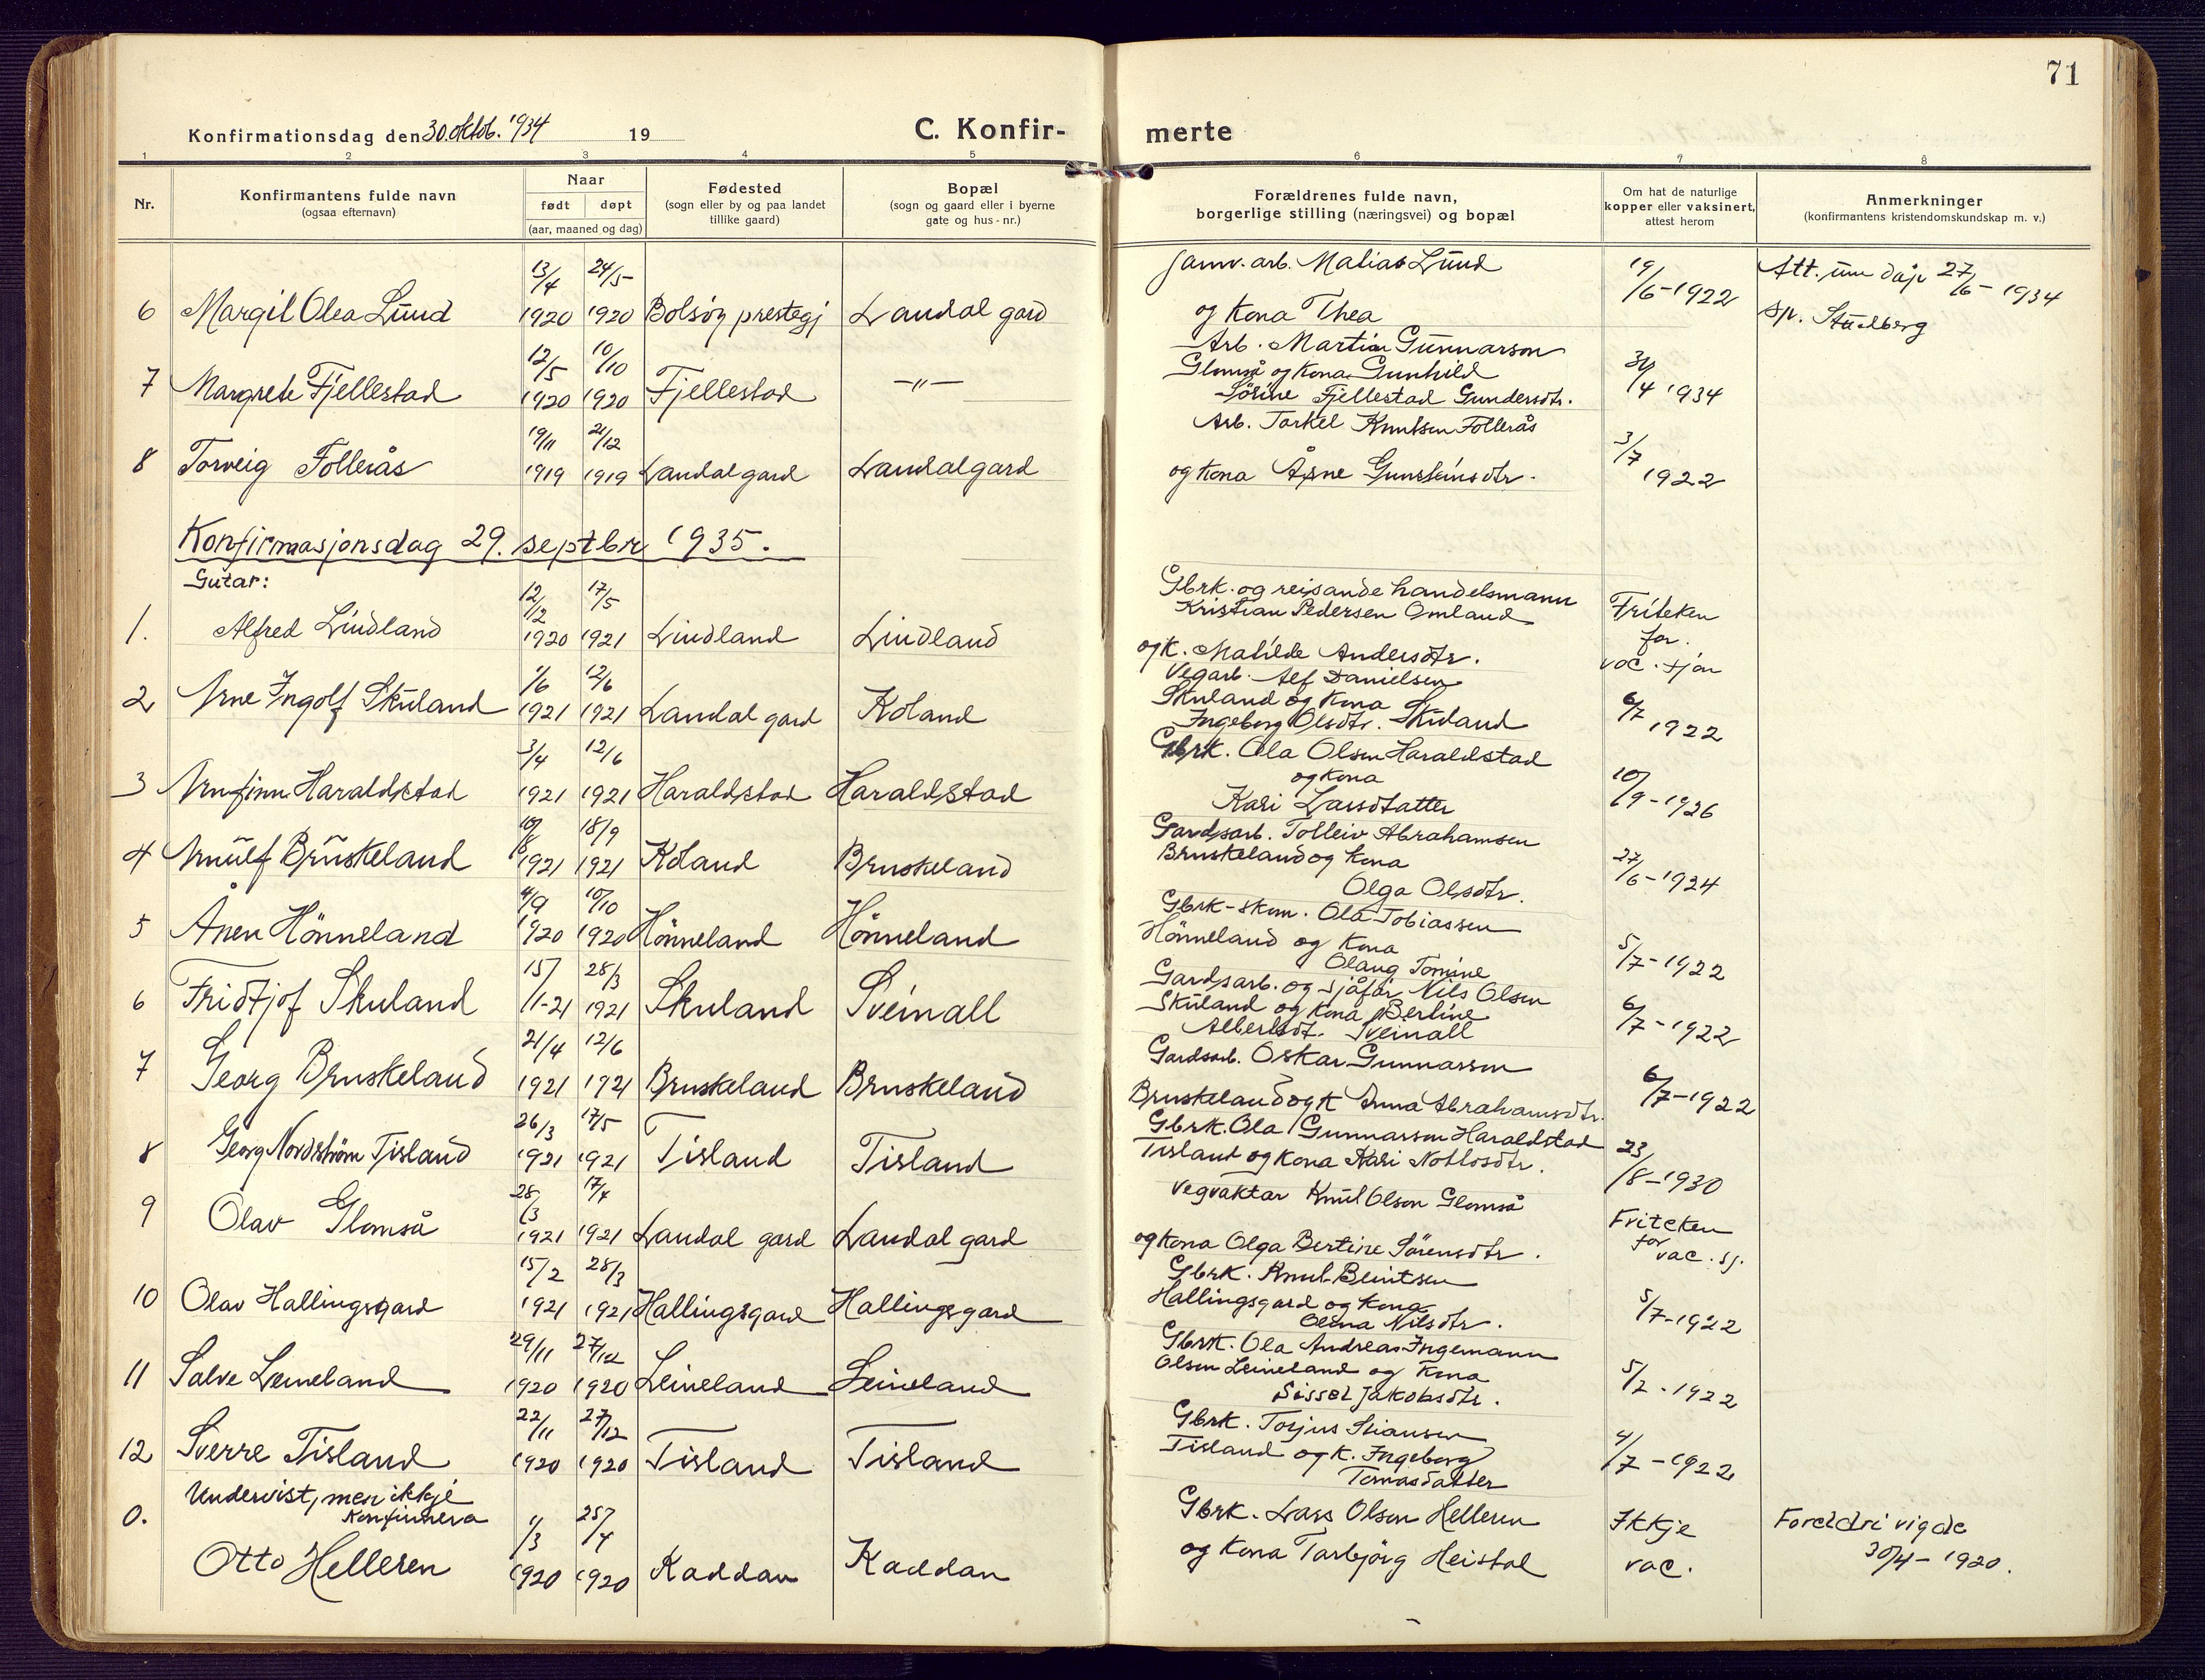 71
Konfirmationsdag den 30. oktob. 1934 19
C. Konfirmerte
1 2 3 4 5 6 7 8
Nr.
Konfirmantens fulde navn
(ogsaa efternavn)
Naar
født døpt
(aar, maaned og dag)
Fødested
(sogn eller by og paa landet
tillike gaard)
Bopæl
(sogn og gaard eller i byerne
gate og hus-nr.)
Forældrenes fulde navn,
borgerlige stilling (næringsvei) og bopæl
Om hat de naturlige
kopper eller vaksinert,
attest herom
Anmerkninger
(konfirmantens kristendomskundskap m. v.)
13/4 24/5 Jarnv. arb. Matias Lund 19/6-1922 Att. um dåp 27/6-1934
6 Margit Olea Lund 1920 1920 Bolsøy prestegj Laudal gard og kona Thea sp. Stuelberg
12/5 10/10 Arb. Martin Gunnarson
7 Margrete Fjellestad 1920 1920 Fjellestad —"— Glomså og kona Gunhild /4 1934
Sörine Fjellestad Gundersdtr.
19/11 21/12 Arb. Torkel Knutsen Follerås 3/7
8 Torveig Follerås 1919 1919 Laudal gard Laudal gard og kona Åsne Gunsteinsdtr. 1922
Konfirmasjonsdag 29. septbr 1935.
Gutar:
12/12 17/5 Gbrk. og reisande handelsmann Friteken
1. Alfred Lindland 1920 1921 Lindland Lindland Kristian Pedersen Omland for
og k. Matilde Andersdtr. vac. sjon
1/6 12/6 Vegarb. Alf Danielsen
2 Arne Ingolf Skuland 1921 1921 Laudal gard Koland Skuland og kona 6/7 1922
Ingeborg Olsdtr. Skuland
3/4 12/6 Gbrk. Ola Olsen Haraldstad
3 Arnfinn Haraldstad 1921 1921 Haraldstad Haraldstad og kona 10/9-1926
Kari Larsdtatter
10/8 18/9 Gardsarb. Tolleiv Abrahamsen
4 Arnulf Bruskeland 1921 1921 Koland Bruskeland Bruskeland og kona 27/6-1924
Olga Olsdtr.
4/9 10/10 Gbrk-skom. Ola Tobiassen
5 Ånen Hönneland 1920 1920 Hönneland Hönneland Hönneland og kona 5/7-1922
Olaug Tomine
15/ 28/3 Gardsarb. og sjåfør Nils Olsen
6 Fridtjof Skuland 1-21 1921 Skuland Sveinall Skuland og kona Bertine 6/7-1922
Albertsdt. Sveinall
21/4 12/6 Gardsarb. Oskar Gunnarsen
7 Georg Bruskeland 1921 1921 Bruskeland Bruskeland Bruskeland og k Anna Abrahamsdtr. 6/7-1922
26/3 17/5 Gbrk. Ola Gunnarson Haraldstad
8 Georg Nordström Tisland 1921 1921 Tisland Tisland Tisland og kona Kari Notlosdtr. 23/8-1930
28/3 17/4 Vegvaktar Knut Olson Glomså Friteken
9 Olav Glomså 1921 1921 Laudal gard Laudal gard og kona Olga Bertine Sörensdtr. for vac. sj.
15/2 28/3 Gbrk. Knut Beintsen
10 Olav Hallingsgard 1921 1921 Hallingsgard Hallingsgard Hallingsgard og kona 5/7-1922
Olena Nilsdtr.
29/11 27/12 Gbrk. Ola Andreas Ingemann
11 Salve Leineland 1920 1920 Leineland Leineland Olsen Leineland og kona 5/2-1922
Sissel Jakobsdtr.
22/11 27/12 Gbrk. Torjus Stiansen
12 Sverre Tisland 1920 1920 Tisland Tisland Tisland og k. Ingeborg 4/7-1922
Tomasdatter
Undervist, men ikkje
konfirmera
0. 1/3 25/4 Gbrk. Lars Olson Helleren Ikkje Foreldri vigde
Otto Helleren 1920 1920 Kaddan Kaddan og kona Torbjörg Heistol vac. 30/4-1920.